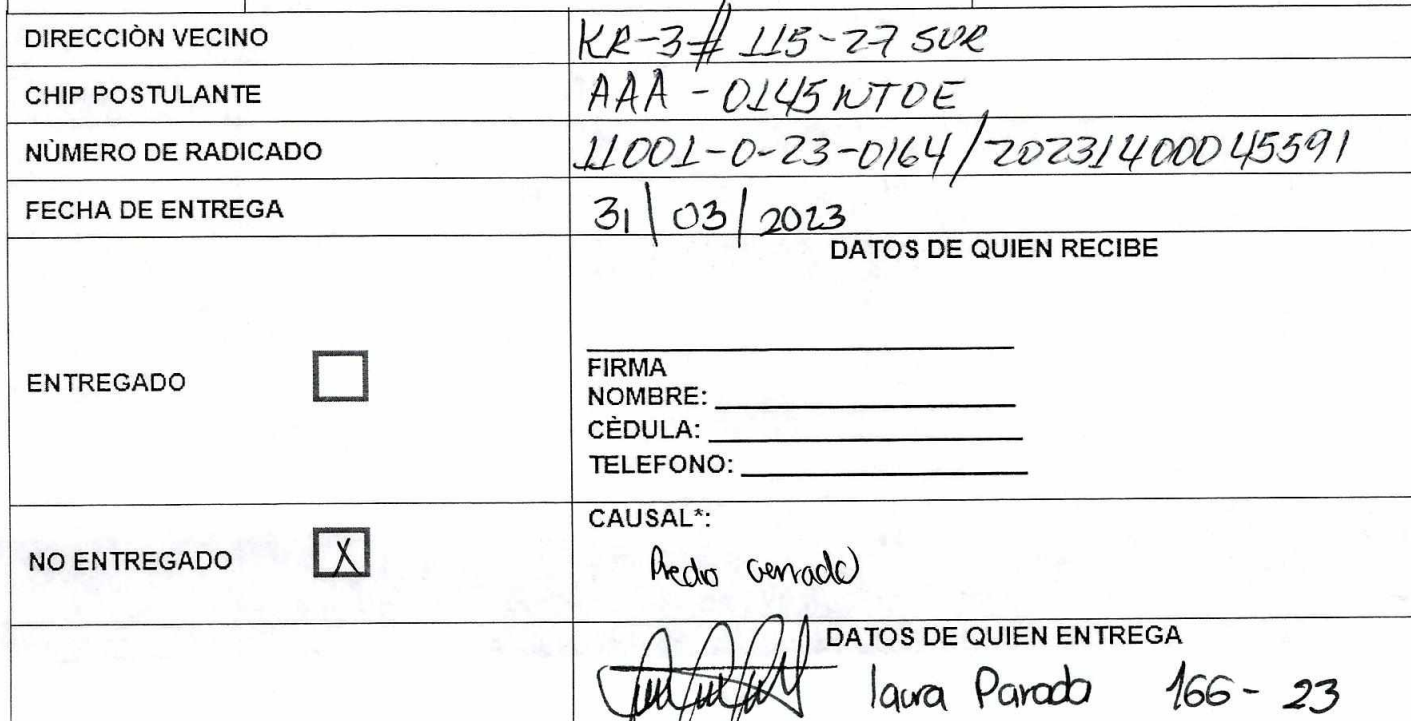 DIRECCIÒN VECINO KR-3# 115-27 SUR
CHIP POSTULANTE AAA - 0145NTOE
NÙMERO DE RADICADO 11001-0-23-0164/20231400045591
FECHA DE ENTREGA 31/03/2023
DATOS DE QUIEN RECIBE
ENTREGADO
FIRMA
NOMBRE:
CÈDULA:
TELEFONO:
NO ENTREGADO X
CAUSAL*:
Predio cerrado
DATOS DE QUIEN ENTREGA
laura Parada 166-23